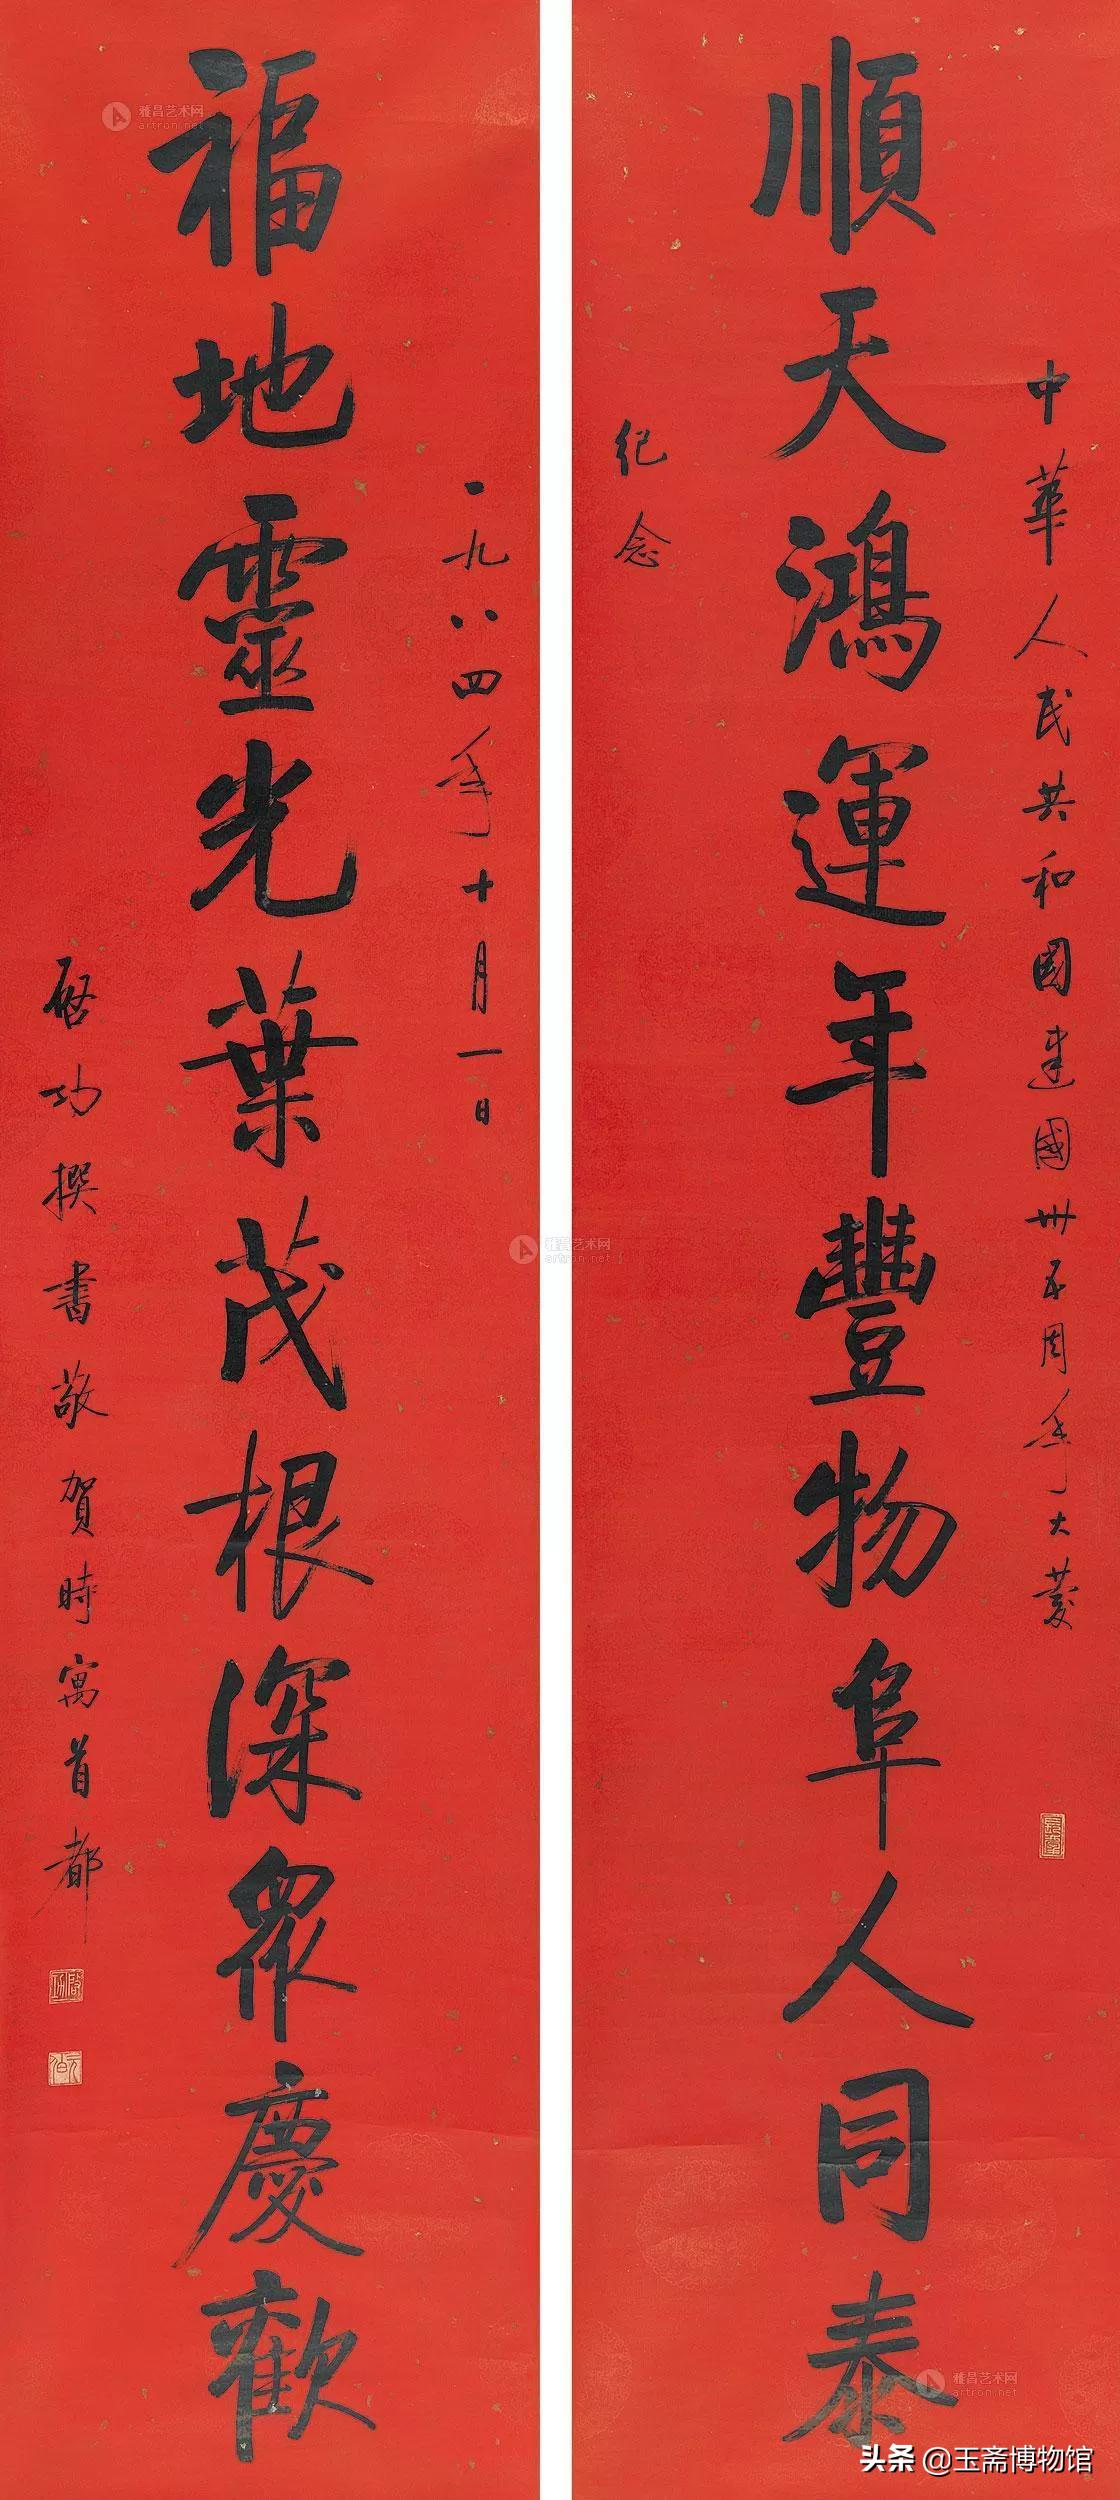 中華人民共和國建國卅五周年大慶
順天鴻運年豐物阜人同泰
紀念
一九八四年十月一日
福地靈光葉茂根深眾慶歡
啓功撰書敬賀時寓首都
啓功
元白
雅昌艺术网
artron.net
雅昌艺术网
artron.net
雅昌艺术网
artron.net
头条 @玉斋博物馆